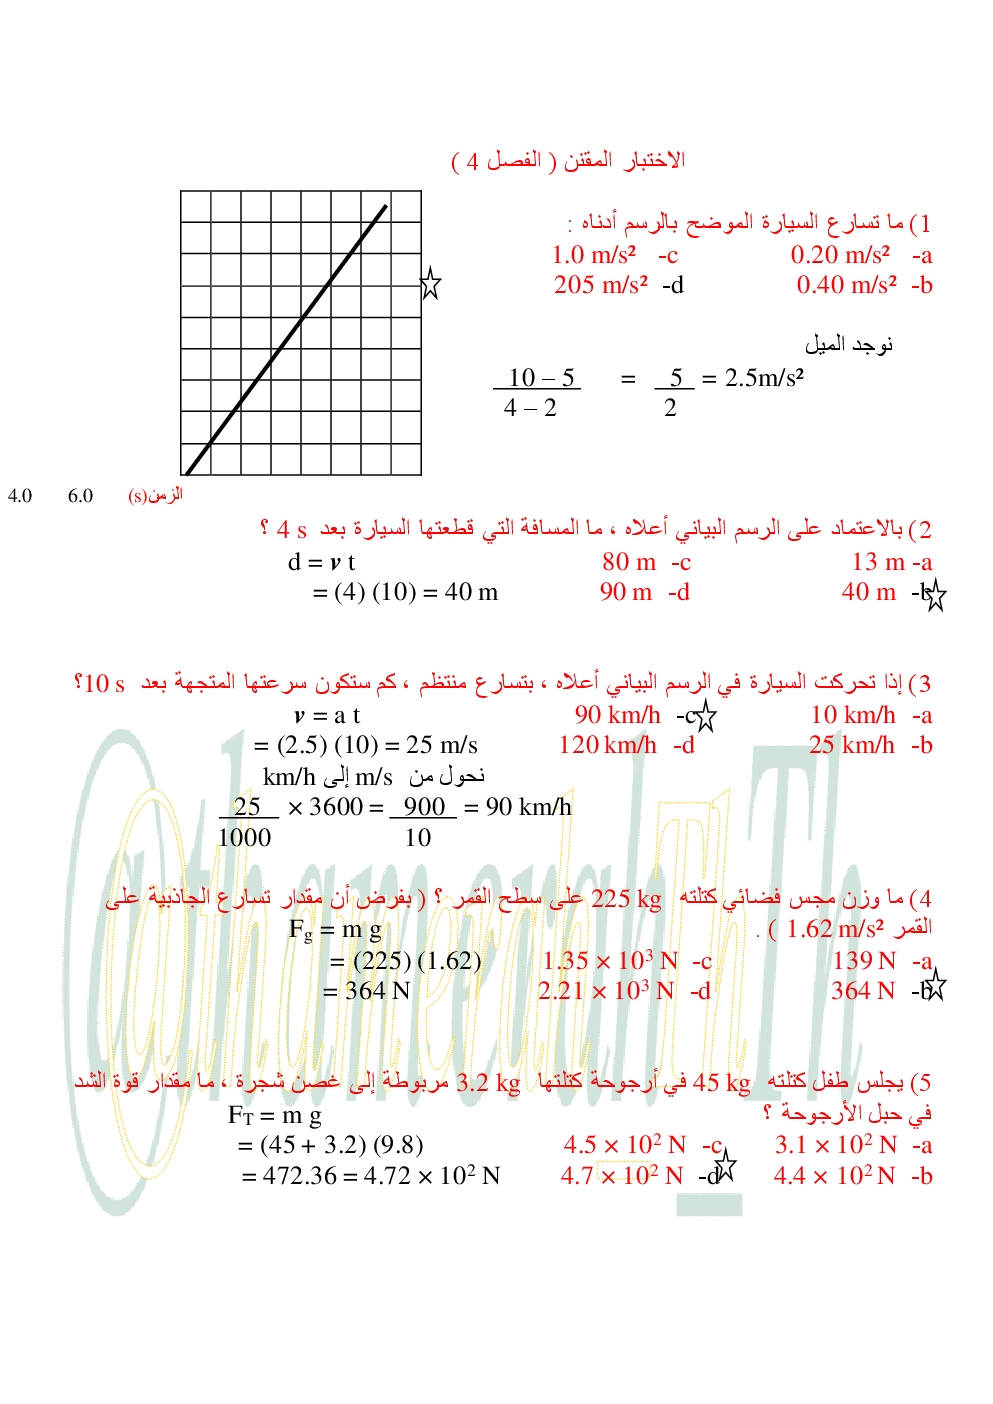 الاختبار المقنن ( الفصل 4 )
1) ما تسارع السيارة الموضح بالرسم أدناه :
0.20 m/s² -a 1.0 m/s² -c
0.40 m/s² -b 205 m/s² -d
نوجد الميل
10 – 5 = 5 = 2.5m/s²
4 – 2 2
4.0 6.0 الزمن(s)
2) بالاعتماد على الرسم البياني أعلاه ، ما المسافة التي قطعتها السيارة بعد 4 s ؟
13 m -a 80 m -c d = v t
40 m -b 90 m -d = (4) (10) = 40 m
3) إذا تحركت السيارة في الرسم البياني أعلاه ، بتسارع منتظم ، كم ستكون سرعتها المتجهة بعد 10 s؟
10 km/h -a 90 km/h -c v = a t
25 km/h -b 120 km/h -d = (2.5) (10) = 25 m/s
نحول من m/s إلى km/h
25 × 3600 = 900 = 90 km/h
1000 10
4) ما وزن مجس فضائي كتلته 225 kg على سطح القمر ؟ ( بفرض أن مقدار تسارع الجاذبية على
القمر 1.62 m/s² ) . Fg = m g
139 N -a 1.35 × 10³ N -c = (225) (1.62)
364 N -b 2.21 × 10³ N -d = 364 N
5) يجلس طفل كتلته 45 kg في أرجوحة كتلتها 3.2 kg مربوطة إلى غصن شجرة ، ما مقدار قوة الشد
في حبل الأرجوحة ؟ FT = m g
3.1 × 10² N -a 4.5 × 10² N -c = (45 + 3.2) (9.8)
4.4 × 10² N -b 4.7 × 10² N -d = 472.36 = 4.72 × 10² N
@thamerah_Th